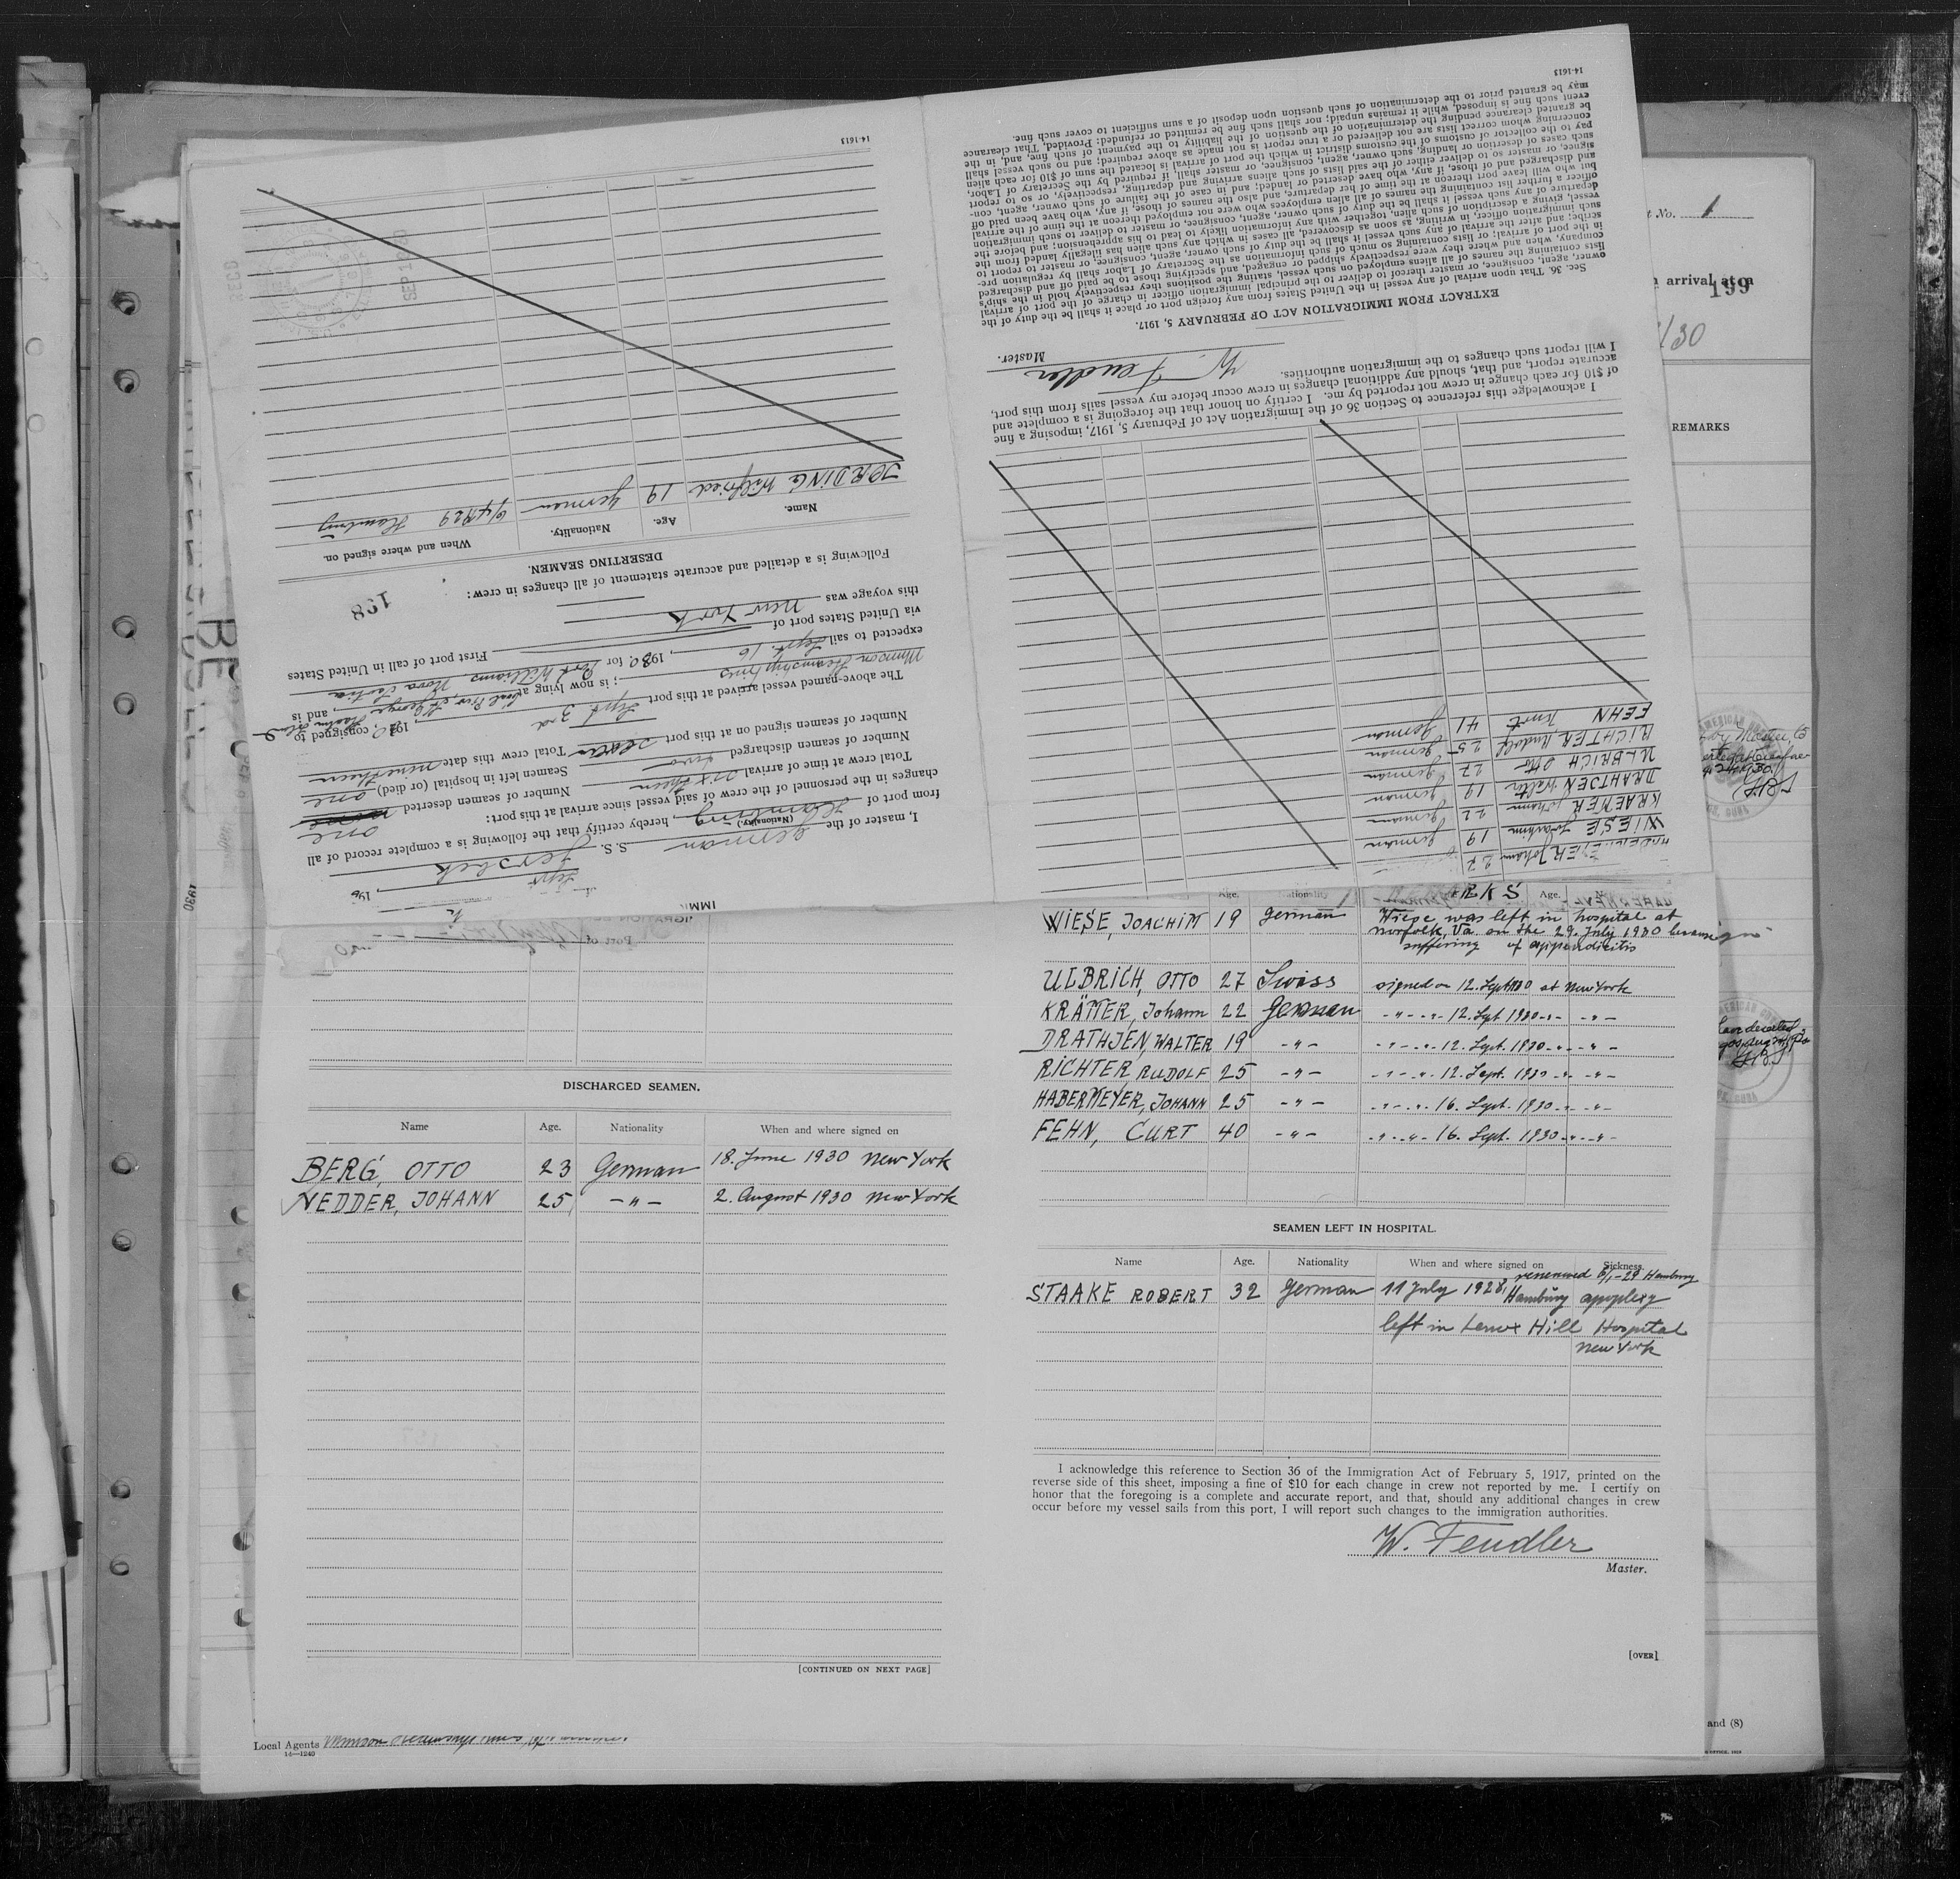 14-1613
I, master of the German S. S. Gersbek
(Nationality.)
from port of Hamburg, hereby certify that the following is a complete record of all
changes in the personnel of the crew of said vessel since arrival at this port:
Total crew at time of arrival Number of seamen deserted one
Number of seamen discharged two Seamen left in hospital (or died) one
Number of seamen signed on at this port seven Total crew this date nineteen
The above-named vessel arrived at this port Sept. 3rd, 1930, consigned to
Munson Steamship Lines; is now lying at and is
expected to sail Sept. 16, 1930 for Port Williams, Nova Scotia
via United States port of First port of call in United States
this voyage was New York
198
Following is a detailed and accurate statement of all changes in crew:
DESERTING SEAMEN.
Name. Age. Nationality. When and where signed on.
JORDING Wilfried 19 german 6/4 1929 Hamburg
14-1613
FEHN Kurt 41 german
RICHTER, Rudolf 25 german
ULBRICH Otto 27 german
DRAHTJEN Walter 19 german
KRAEMER Johann 22 german
WIESE Joachim 19 german
I acknowledge this reference to Section 36 of the Immigration Act of February 5, 1917, imposing a fine
of $10 for each change in crew not reported by me. I certify on honor that the foregoing is a complete and
accurate report, and that, should any additional changes in crew occur before my vessel sails from this port,
I will report such changes to the immigration authorities.
W. Fendler
Master.
EXTRACT FROM IMMIGRATION ACT OF FEBRUARY 5, 1917.
Sec. 36. That upon arrival of any vessel in the United States from any foreign port or place it shall be the duty of the
owner, agent, consignee, or master thereof to deliver to the principal immigration officer in charge of the port of arrival
lists containing the names of all aliens employed on such vessel, stating the positions they respectively hold in the ship's
company, when and where they were respectively shipped or engaged, and specifying those to be paid off and discharged
in the port of arrival; or lists containing so much of such information as the Secretary of Labor shall by regulation pre-
scribe; and after the arrival of any such vessel it shall be the duty of such owner, agent, consignee, or master to report to
such immigration officer, in writing, as soon as discovered, all cases in which any such alien has illegally landed from the
vessel, giving a description of such alien, together with any information likely to lead to his apprehension; and before the
departure of any such vessel it shall be the duty of such owner, agent, consignee, or master to deliver to such immigration
officer a further list containing the names of all alien employees who were not employed thereon at the time of the arrival
but who will leave port thereon at the time of her departure, and also the names of those, if any, who have been paid off
and discharged and of those, if any, who have deserted or landed; and in case of the failure of such owner, agent, con-
signee, or master so to deliver either of the said lists of such aliens arriving and departing, respectively, or so to report
such cases of desertion or landing, such owner, agent, consignee, or master shall, if required by the Secretary of Labor,
pay to the collector of customs of the customs district in which the port of arrival is located the sum of $10 for each alien
concerning whom correct lists are not delivered or a true report is not made as above required; and no such vessel shall
be granted clearance pending the determination of the question of the liability to the payment of such fine, and, in the
event such fine is imposed, while it remains unpaid; nor shall such fine be remitted or refunded: Provided, That clearance
may be granted prior to the determination of such question upon deposit of a sum sufficient to cover such fine.
No. 1
arrival at a
199
/30
REMARKS
DISCHARGED SEAMEN.
Name Age. Nationality When and where signed on
BERG, OTTO 23 German 18. June 1930 New York
VEDDER, JOHANN 25 -"- 2. August 1930 New York
[CONTINUED ON NEXT PAGE]
Local Agents Munson
14—1240
Age. Nationality
WIESE, JOACHIM 19 german Wiese was left in hospital at
Norfolk, Va. on the 29. July 1930 because
suffering of appendicitis
ULBRICH, OTTO 27 Swiss signed on 12. Sept 1930 at New York
KRÄMER, Johann 22 German -"- -"- 12. Sept 1930 -"- -"-
DRATHJEN, WALTER 19 -"- -"- -"- 12. Sept. 1930 -"- -"-
RICHTER, RUDOLF 25 -"- -"- -"- 12. Sept. 1930 -"- -"-
HABERMEYER, JOHANN 25 -"- -"- -"- 16. Sept. 1930 -"- -"-
FEHN, CURT 40 -"- -"- -"- 16. Sept. 1930 -"- -"-
SEAMEN LEFT IN HOSPITAL.
Name Age. Nationality When and where signed on Sickness.
renewed 6/1-29 Hamburg
STAAKE ROBERT 32 German 11 July 1928, Hamburg apoplexy
left in Lenox Hill Hospital
New York
I acknowledge this reference to Section 36 of the Immigration Act of February 5, 1917, printed on the
reverse side of this sheet, imposing a fine of $10 for each change in crew not reported by me. I certify on
honor that the foregoing is a complete and accurate report, and that, should any additional changes in crew
occur before my vessel sails from this port, I will report such changes to the immigration authorities.
W. Fendler
Master.
[OVER]
and (8)